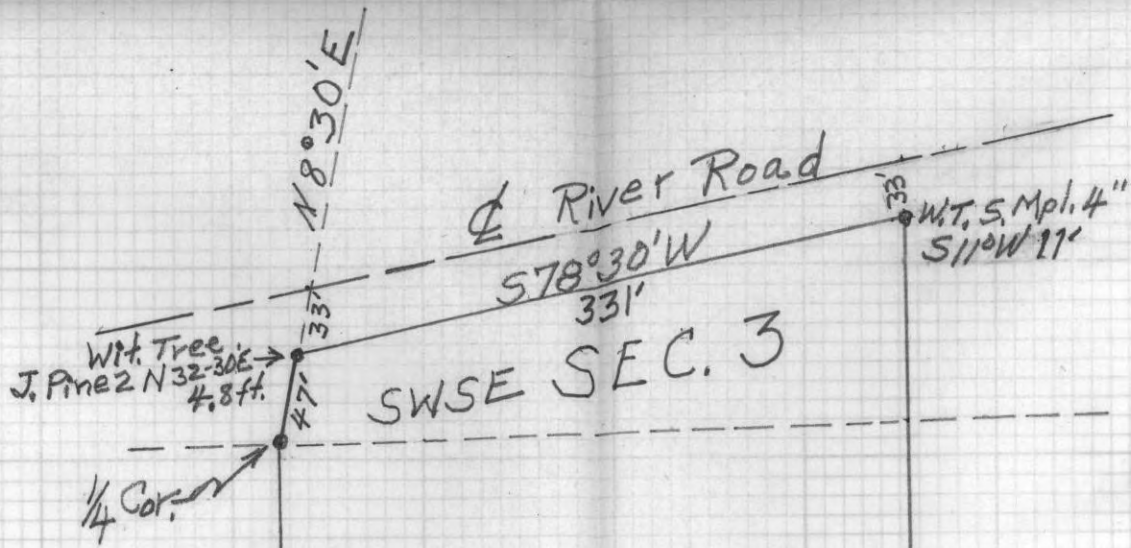 N8°30'E
℄ River Road
33'
W.T. S. Mpl. 4"
S11°W 11'
S78°30'W
331'
33'
Wit. Tree
J. Pine 2 N 32-30'E
4.8 ft.
47'
SWSE SEC. 3
1/4 Cor.